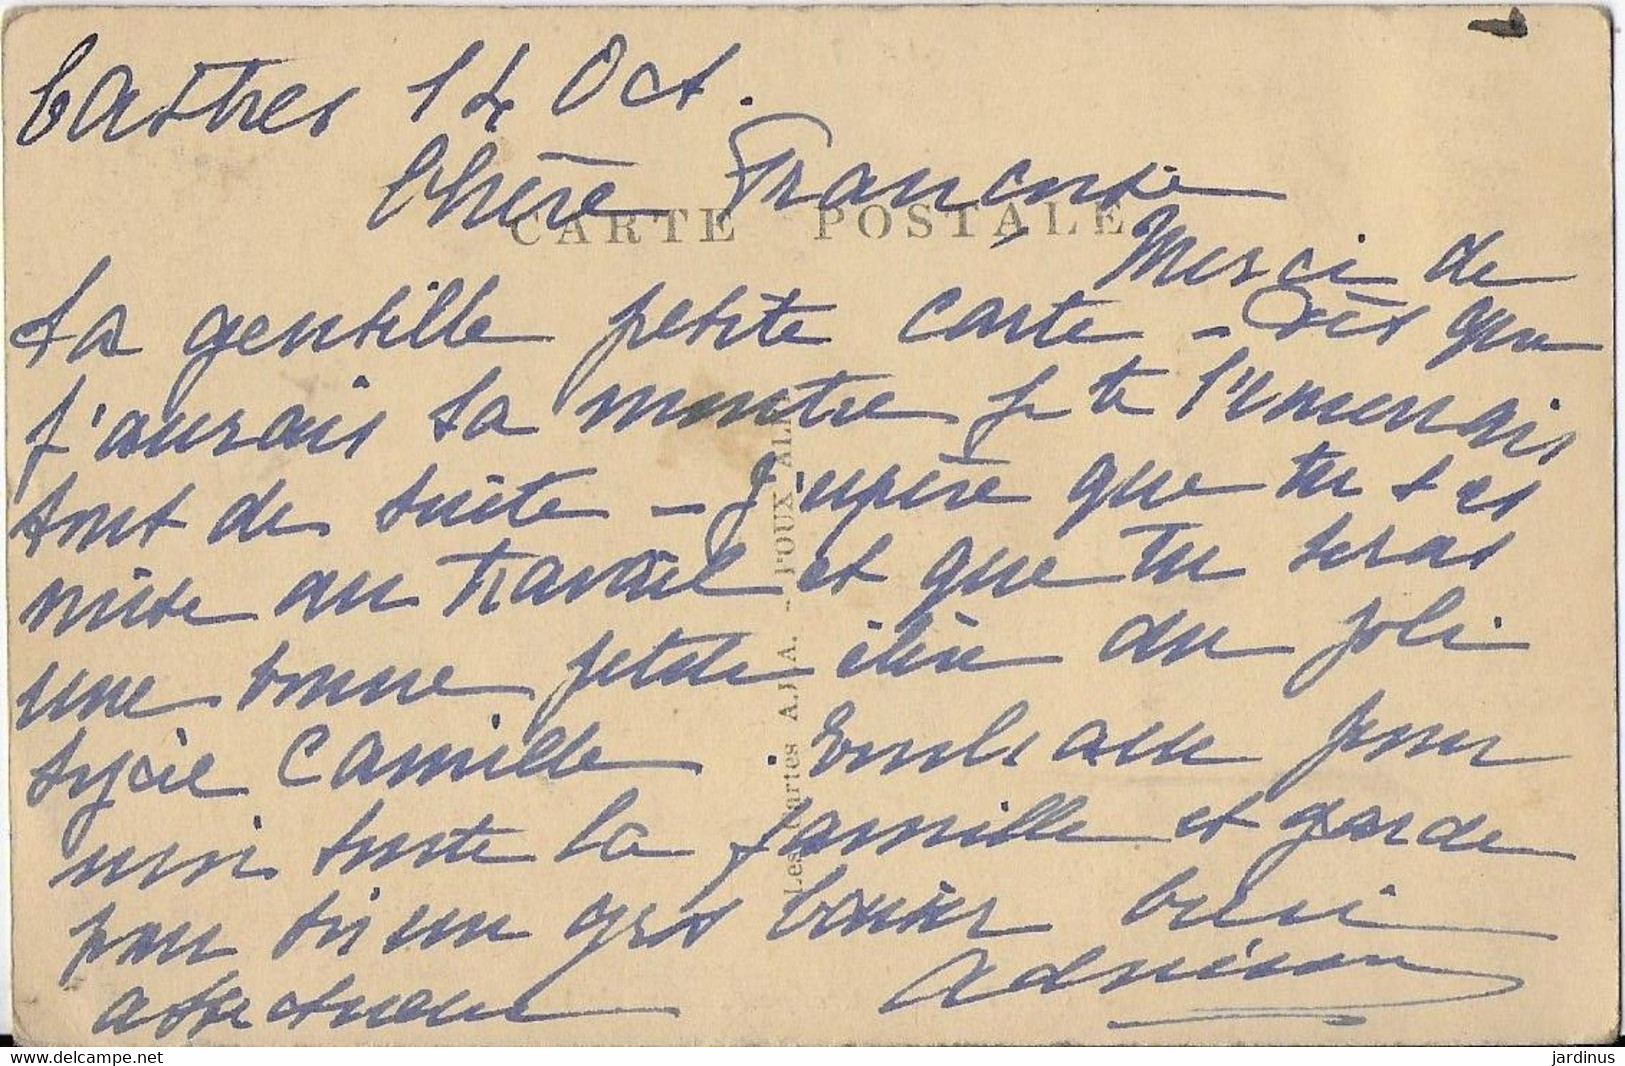 Castres 14 Oct.
Chère Françoise
CARTE POSTALE
Merci de
ta gentille petite carte - Dès que
j'aurais ta montre je te l'
tout de suite - J'espère que tu t'es
mise au travail et que tu seras
une bonne petite élève du joli
lycée Camille. Embrasse pour
moi toute la famille et garde
pour toi un gros baiser bien
affectueux
Les Cartes A.P.A. - POUX ALBI
jardinus
www.delcampe.net